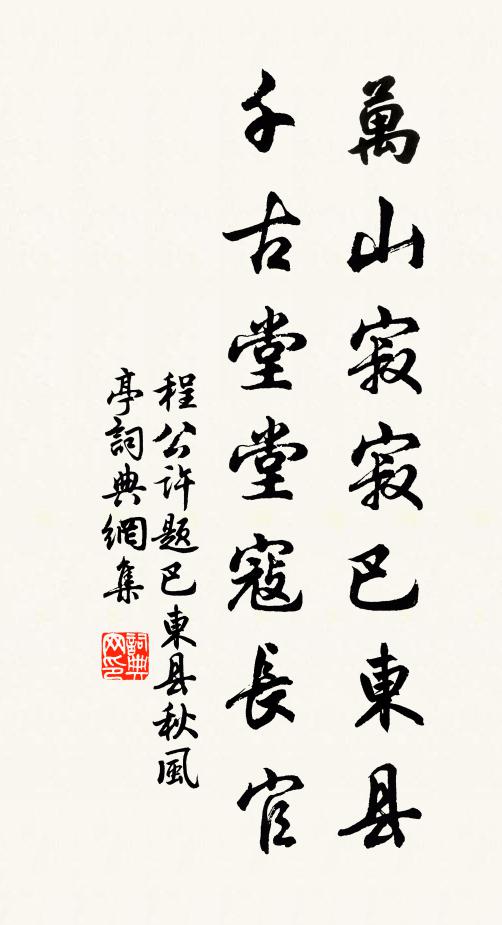 萬山寂寂巴東县
千古堂堂寇長官
程公许題巴東县秋風
亭詞典網集
詞典
网印